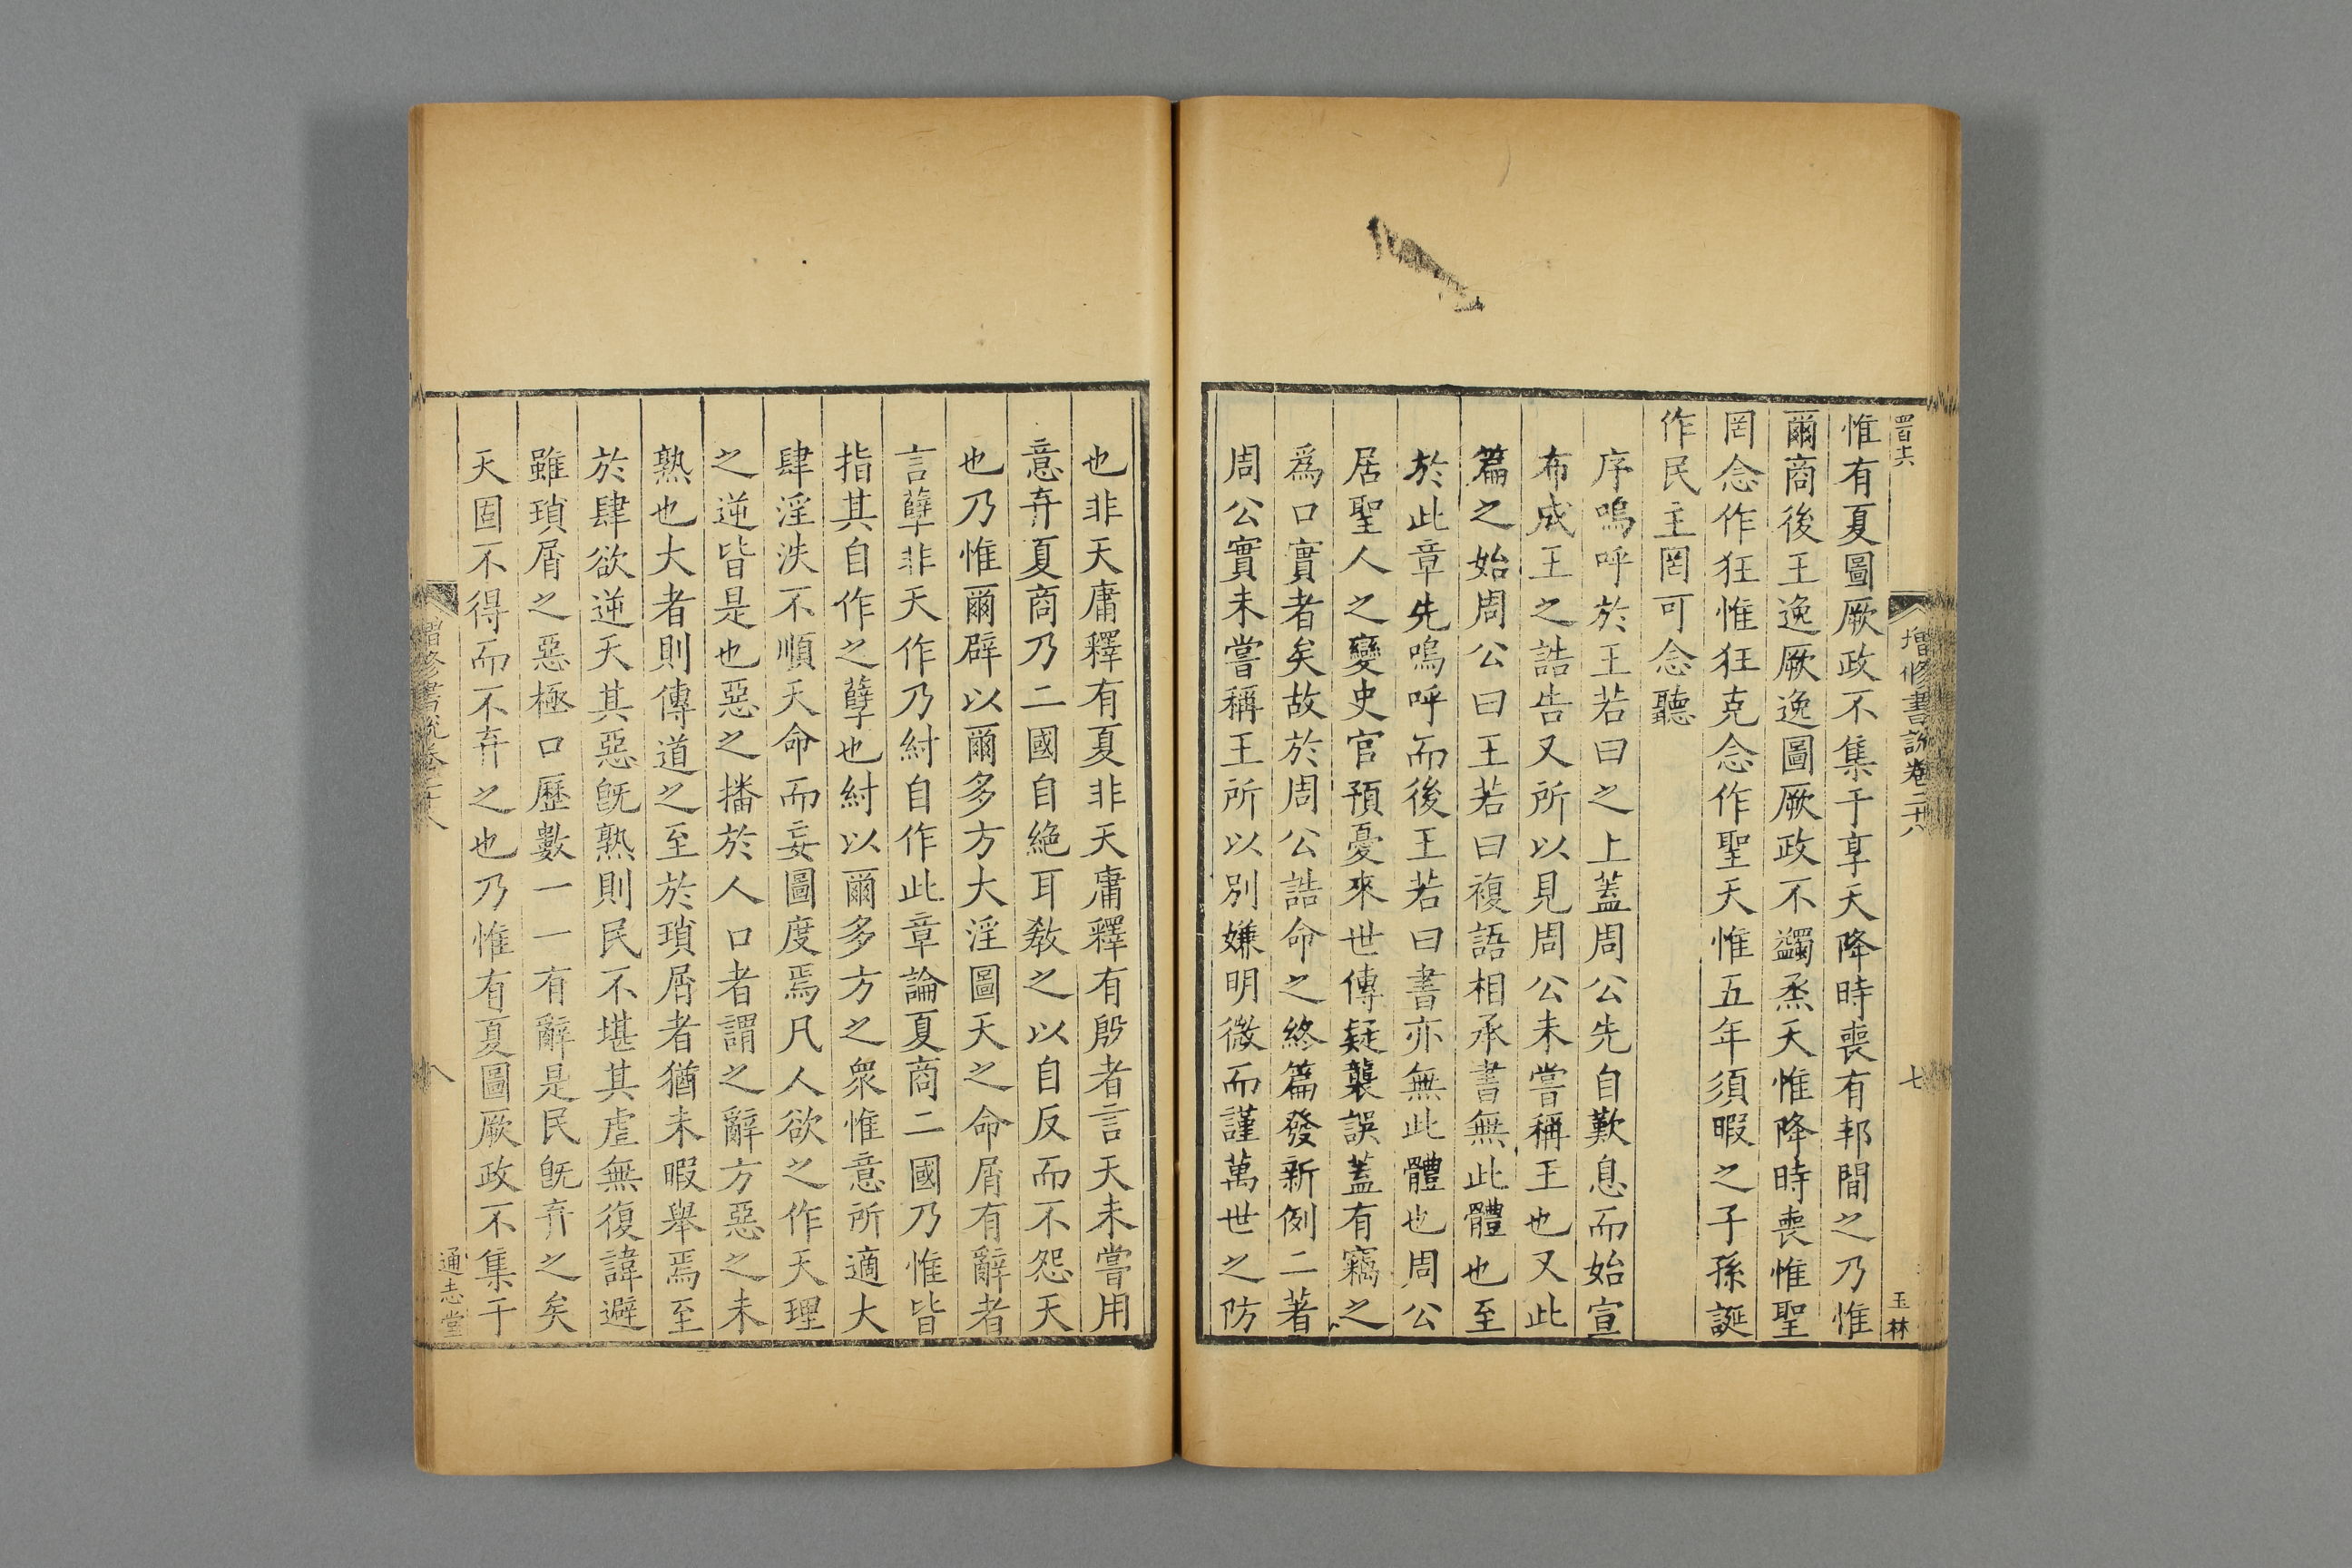 惟有夏圖厥政不集于享天降時喪有邦間之乃惟
爾商後王逸厥逸圖厥政不蠲烝天惟降時喪惟聖
罔念作狂惟狂克念作聖天惟五年須暇之子孫誕
作民主罔可念聽
序嗚呼於王若曰之上蓋周公先自歎息而始宣
布成王之誥告又所以見周公未嘗稱王也又此
篇之始周公曰王若曰複語相承書無此體也至
於此章先嗚呼而後王若曰書亦無此體也周公
居聖人之變史官預憂來世傳疑襲誤蓋有竊之
爲口實者矣故於周公誥命之終篇發新例二著
周公實未嘗稱王所以別嫌明微而謹萬世之防
增修書説卷二十八
七
玉林
也非天庸釋有夏非天庸釋有殷者言天未嘗用
意弃夏商乃二國自絶耳敎之以自反而不怨天
也乃惟爾辟以爾多方大淫圖天之命屑有辭者
言孽非天作乃紂自作此章論夏商二國乃惟皆
指其自作之孽也紂以爾多方之衆惟意所適大
肆淫泆不順天命而妄圖度焉凡人欲之作天理
之逆皆是也惡之播於人口者謂之辭方惡之未
熟也大者則傳道之至於瑣屑者猶未暇舉焉至
於肆欲逆天其惡旣熟則民不堪其虐無復諱避
雖瑣屑之惡極口歷數一一有辭是民旣弃之矣
天固不得而不弃之也乃惟有夏圖厥政不集于
增修書説卷二十八
八
通志堂